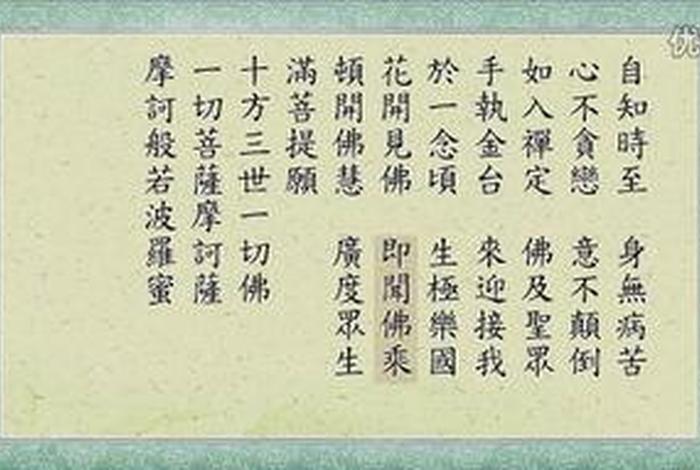 自知時至 身無病苦
心不貪戀 意不顛倒
如入禪定 佛及聖眾
手執金台 來迎接我
於一念頃 生極樂國
花開見佛 即聞佛乘
頓開佛慧 廣度眾生
滿菩提願
十方三世一切佛
一切菩薩摩訶薩
摩訶般若波羅蜜
优